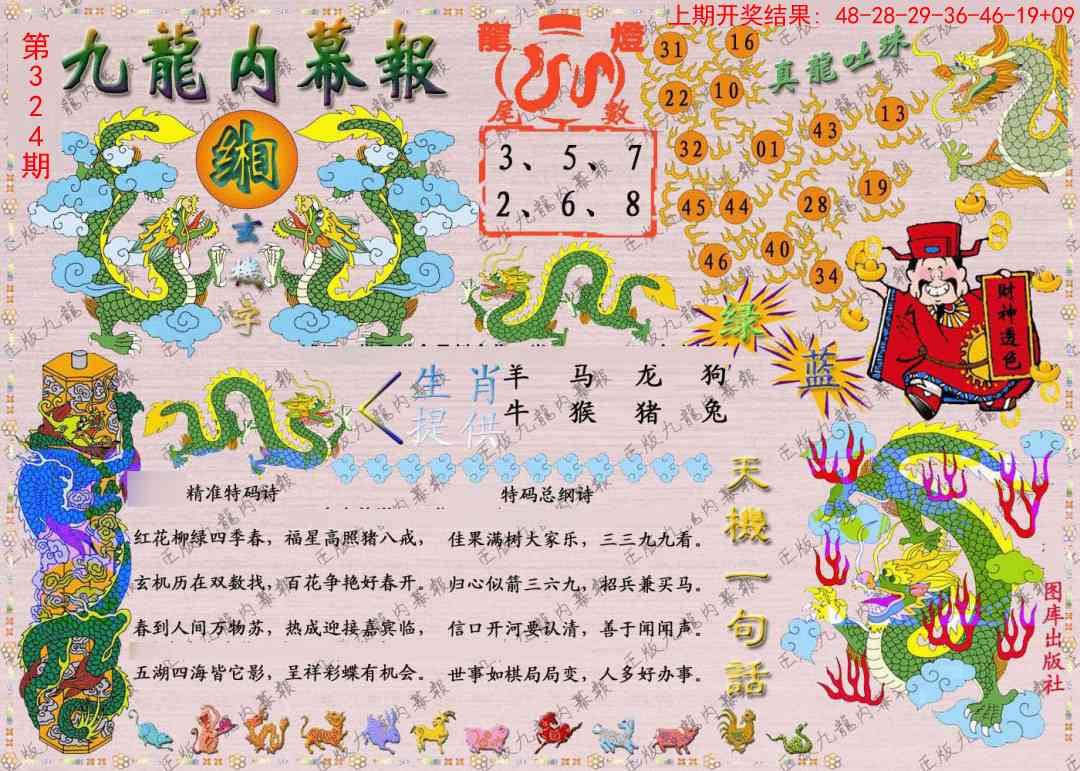 上期开奖结果: 48-28-29-36-46-19+09
第324期
九龍内幕報
缃
玄機字
龍燈
尾數
3、5、7
2、6、8
真龍吐珠
31 16
22 10
13
43
32 01
19
45 44 28
40
46
34
财神透色
绿
蓝
生肖提供
羊 马 龙 狗
牛 猴 猪 兔
精准特码诗
红花柳绿四季春，福星高照猪八戒，
玄机历在双数找，百花争艳好春开。
春到人间万物苏，热成迎接嘉宾临，
五湖四海皆它影，呈祥彩蝶有机会。
特码总纲诗
佳果满树大家乐，三三九九看。
归心似箭三六九，招兵兼买马。
信口开河要认清，善于闻闻声。
世事如棋局局变，人多好办事。
天機一句話
图库出版社
正版九龍内幕報